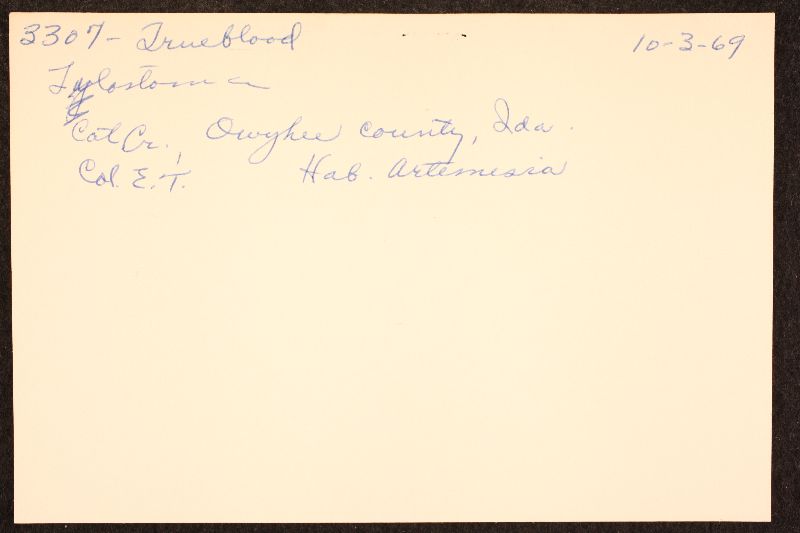 3307- Trueblood 10-3-69
Tylostoma
Cat Cr., Owyhee county, Ida.
Col. E.T. Hab. Artemesia